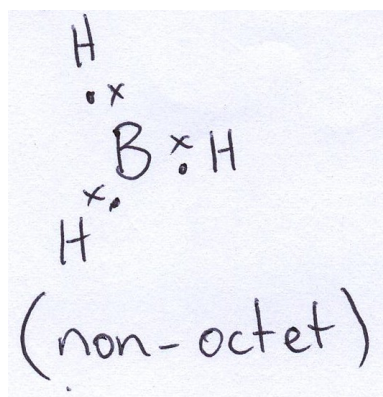 H
• x
B x• H
x •
H
(non-octet)